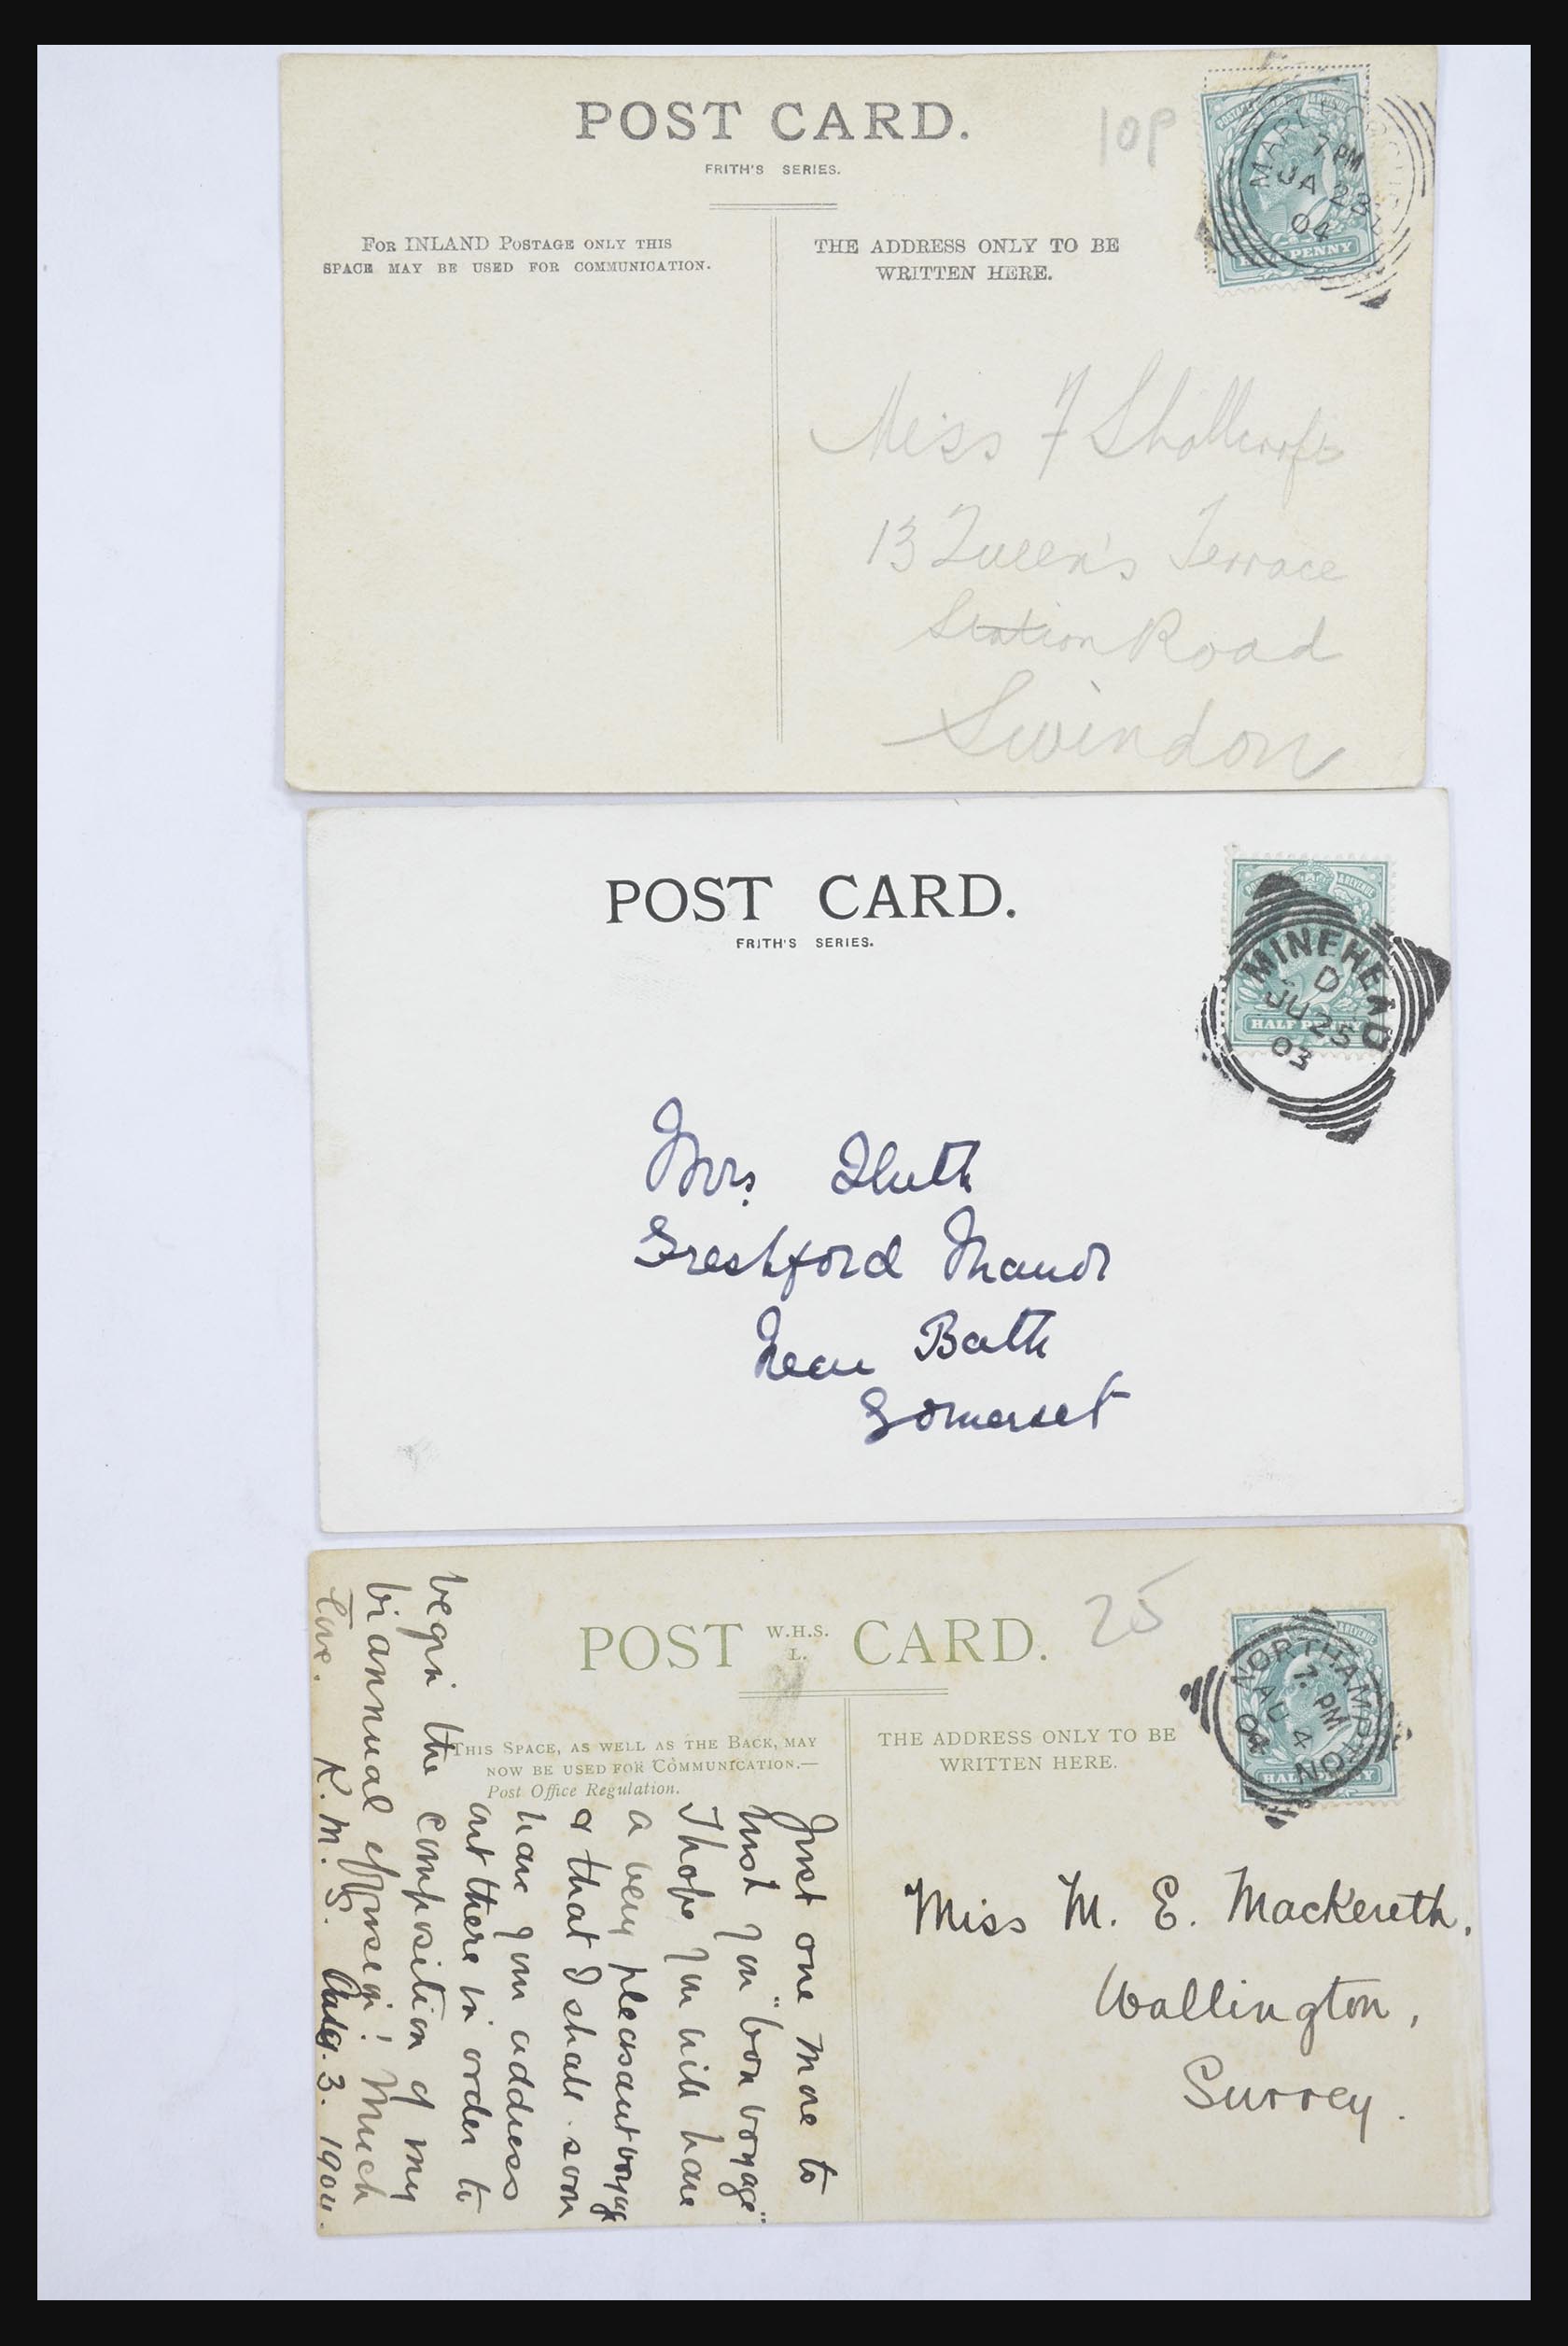 POST CARD.
FRITH'S SERIES.
10P
For INLAND Postage only this
space may be used for communication.
THE ADDRESS ONLY TO BE
WRITTEN HERE.
7 PM
JA 28
04
PENNY
Miss F Shallcroft
13 Queen's Terrace
Station Road
Swindon
POST CARD.
FRITH'S SERIES.
MINEHEAD
D
JU 25
03
HALF PENNY
Mrs.
Freshford Manor
Near Bath
Somerset
POST W.H.S. L. CARD.
25
This Space, as well as the Back, may
now be used for Communication.—
Post Office Regulation.
THE ADDRESS ONLY TO BE
WRITTEN HERE.
NORTHAMPTON
7. PM
AU 4
04
Miss M. E. Mackereth.
Wallington,
Surrey.
Just one more to
wish you "bon voyage"
I hope you will have
a very pleasant voyage
& that I shall soon
have your address
out there in order to
begin the composition of my
biannual effusion! Much
love. K. M. S. Aug. 3. 1904.